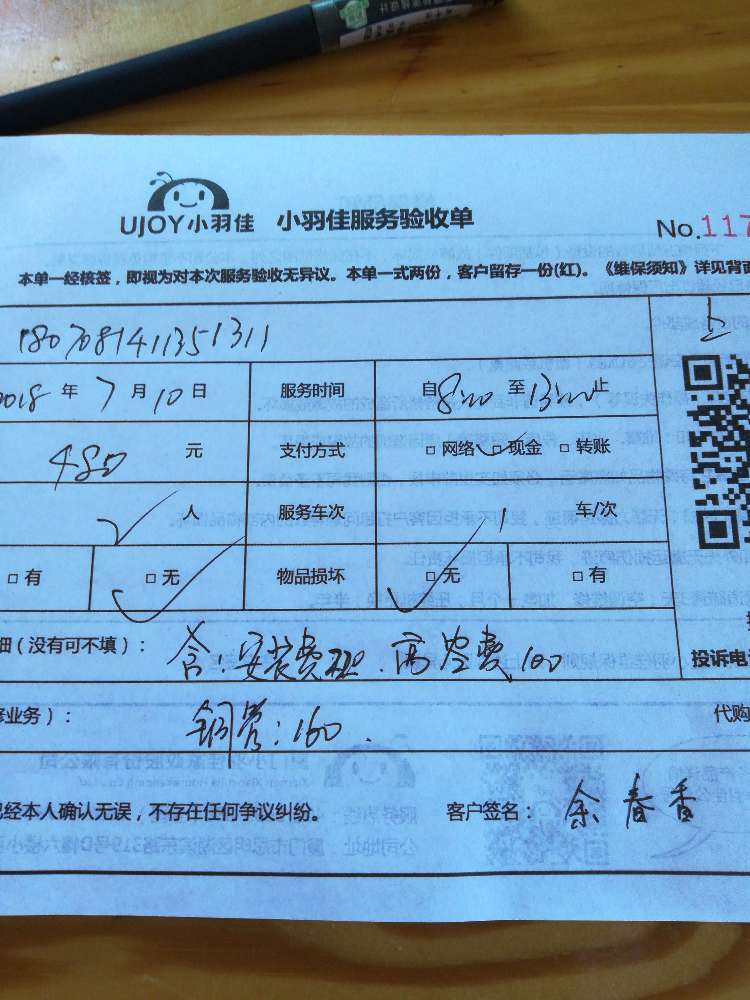 UJOY小羽佳 小羽佳服务验收单
No.117
本单一经核签，即视为对本次服务验收无异议。本单一式两份，客户留存一份(红)。《维保须知》详见背面
180708141135 1311
2018 年 7 月 10 日 服务时间 自 8:00 至 13:00 止
480 元 支付方式 □ 网络 □ 现金 □ 转账
人 服务车次 1 车/次
□ 有 □ 无 物品损坏 □ 无 □ 有
细（没有可不填）： 含:安装费 高空费100
投诉电话
修业务）： 铜管:160.
代购
已经本人确认无误，不存在任何争议纠纷。 客户签名： 余春香